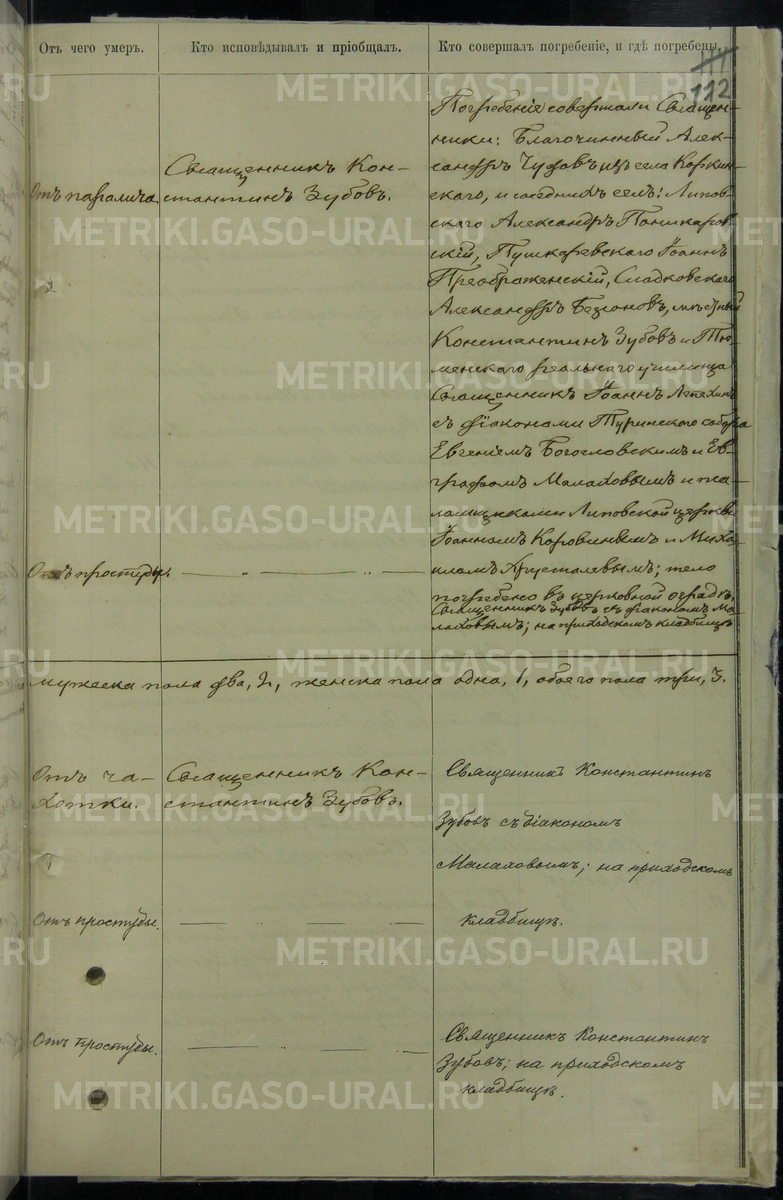 Отъ чего умеръ.
Кто исповѣдывалъ и пріобщалъ.
Кто совершалъ погребеніе, и гдѣ погребены.
111
112
Отъ паралича.
Священникъ Кон-
стантинъ Зубовъ.
Погребеніе совершали Священ-
ники: Благочинный Алек-
сандръ Чудовъ изъ села Коркин-
скаго, и соседнихъ селъ: Липов-
скаго Александръ Поникаров-
скій, Пушкаревскаго Іоаннъ
Преображенскій, Сладковскаго
Александръ, мѣстный
Константинъ Зубовъ и Тю-
менскаго реальнаго училища
Священникъ Іоаннъ Лепехинъ
съ діаконами Туринскаго собора
Евгеніемъ Богословскимъ и Ев-
графомъ Малаховымъ и пса-
ломщиками Липовской церкви
Іоанномъ Коровинымъ и Миха-
иломъ Хрусталевымъ; тело
погребено въ церковной оградѣ.
Отъ простуды.
Священникъ Зубовъ съ діакономъ Ма-
лаховымъ; на приходскомъ кладбищѣ
мужеска пола два, 2, женска пола одна, 1, обоего пола три, 3.
Отъ ча-
хотки.
Священникъ Кон-
стантинъ Зубовъ.
Священникъ Константинъ
Зубовъ съ діакономъ
Малаховымъ; на приходскомъ
кладбищѣ.
Отъ простуды.
Отъ простуды.
Священникъ Константинъ
Зубовъ; на приходскомъ
кладбищѣ.
METRIKI.GASO-URAL.RU